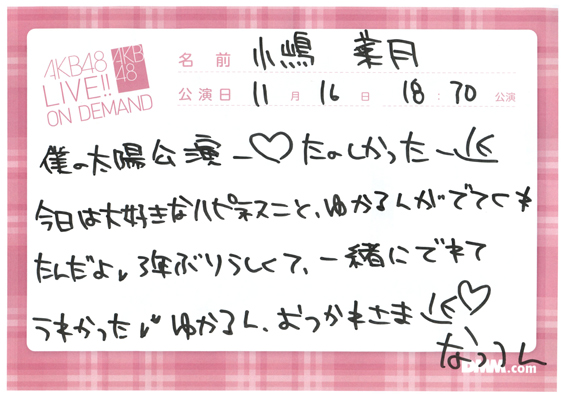 AKB48
LIVE!!
ON DEMAND
AKB
48
名前 小嶋 菜月
公演日 11月16日 18:30 公演
僕の太陽公演ー♡たのしかったー
今日は大好きなハピネスこと、ゆかるんがでてくれ
たんだよ、3年ぶりらしくて、一緒にでれて
うれかった ゆかるん、おつかれさま♡
なっつん
DMM.com